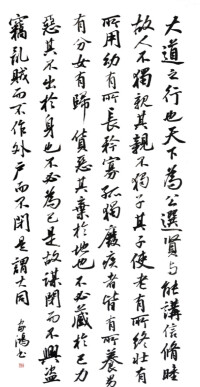 大道之行也天下為公選賢与能講信脩睦
故人不獨親其親不獨子其子使老有所終壯有
所用幼有所長矜寡孤獨廢疾者皆有所養男
有分女有歸貨惡其棄於地也不必藏於己力
惡其不出於身也不必為己是故謀閉而不興盜
竊亂賊而不作外戶而不閉是謂大同